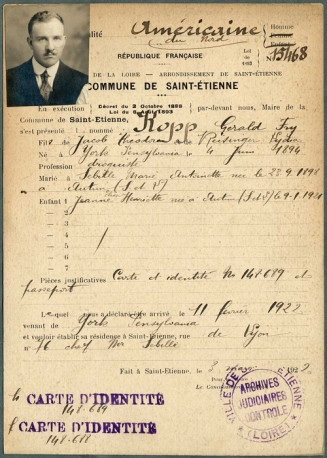 Américaine
du Nord
RÉPUBLIQUE FRANÇAISE
Loi
de
1893
Homme
Femme
Enfant
13468
DE LA LOIRE - ARRONDISSEMENT DE SAINT-ÉTIENNE
COMMUNE DE SAINT-ÉTIENNE
En exécution
Décret du 2 Octobre 1888
Loi du 8 Août 1893
par-devant nous, Maire de la
Commune de Saint-Etienne,
s'est présenté nommé Kopp Gerald Fry
Fils de Jacob Theodore Reisinger Lydia
Né à York Pensylvania le 4 juin 1894
Profession
Marié à Sebille Marie Antoinette née le 23-9-1898
à Autun (S et L)
Enfant 1 Jeanne Henriette née à Autun (S et L) 69-1-1921
— 2
— 3
— 4
— 5
— 6
— 7
Pièces justificatives Carte et identité No 148-689 et
passeport
Lequel nous a déclaré être arrivé, le 11 fevrier 1922
venant de York Pensylvania
et vouloir établir sa résidence à Saint-Etienne, rue de Lyon
No 76 chez Mr Sebille
Fait à Saint-Étienne, le 3 mars 1922
Le Comm
CARTE D'IDENTITÉ
148-689
CARTE D'IDENTITÉ
148-688
VILLE DE ST ETIENNE
ARCHIVES
JUDICIAIRES
CONTROLE
(LOIRE)